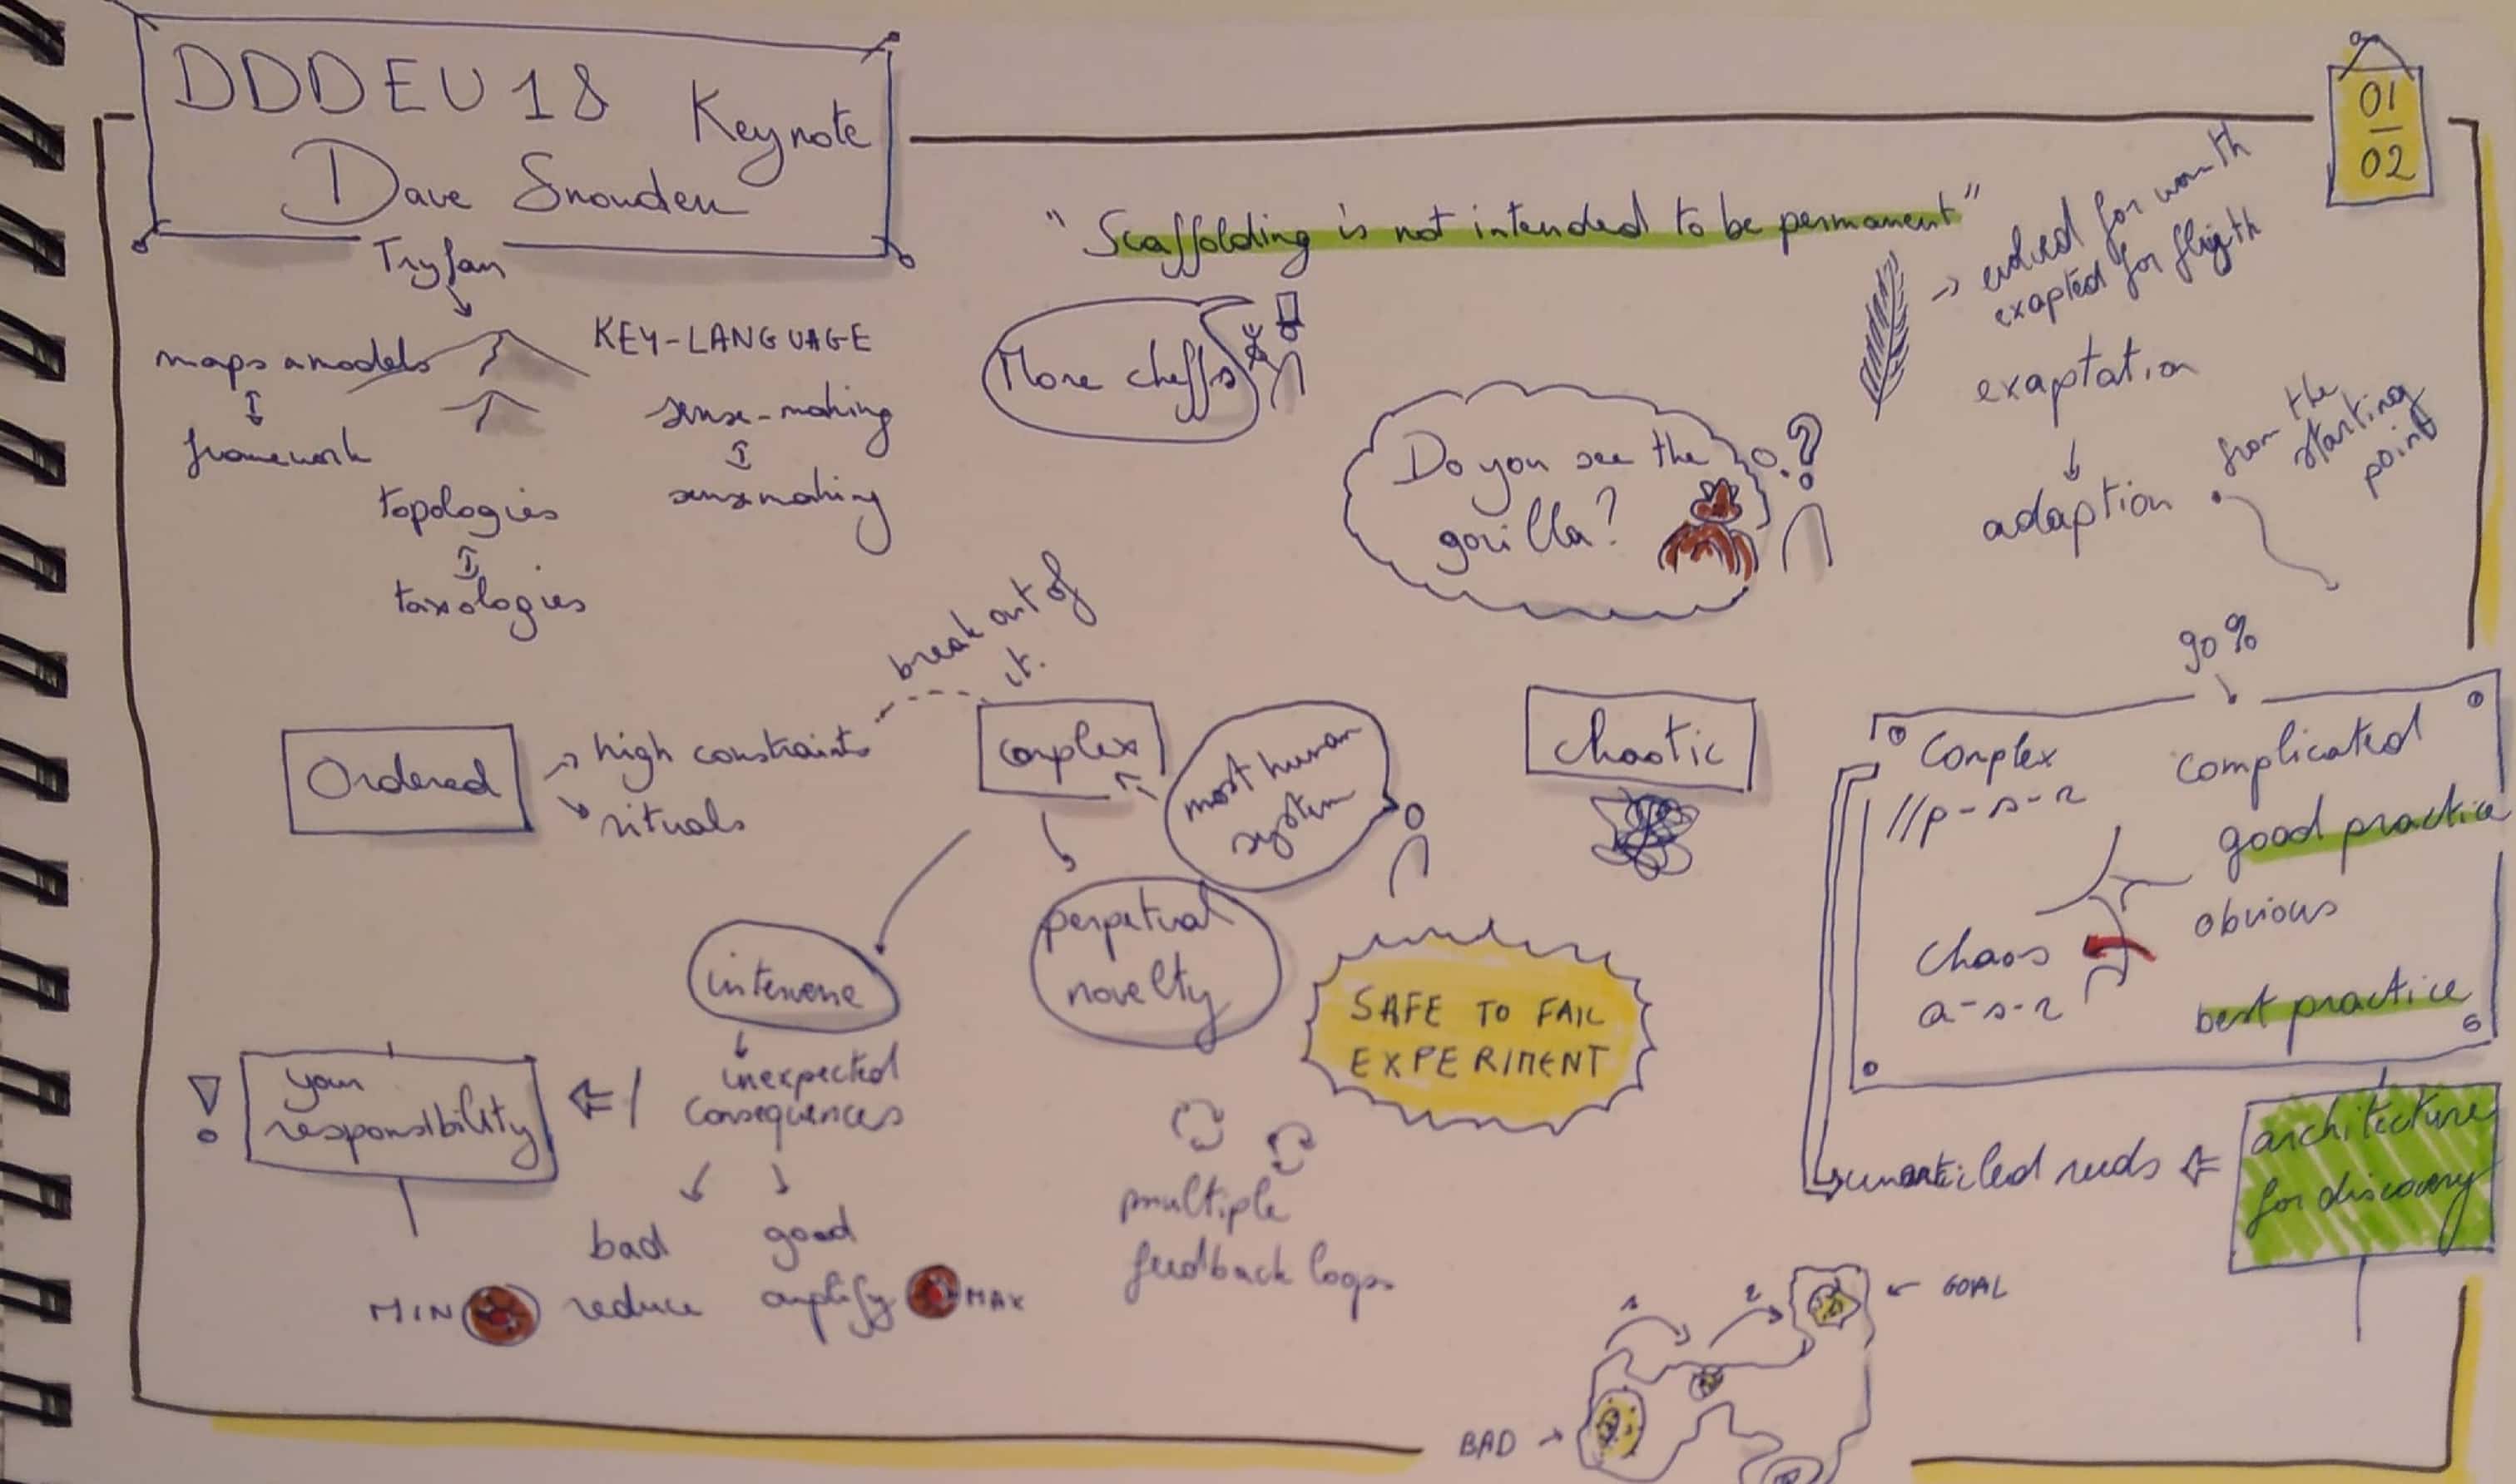 DDDEU18 Keynote
Dave Snowden
01
02
"Scaffolding is not intended to be permanent"
Tryfan
maps & models
framework
KEY-LANGUAGE
sense-making
sensemaking
topologies
taxologies
More cheffs
Do you see the
gorilla?
?
exapted for fligth
exaptation
adaption
from the
starting
point
Ordered
high constraints
rituals
break out of
it.
Complex
most human
system
perpetual
novelty
Chaotic
90%
Complex
//p-s-r
complicated
good practice
obvious
best practice
Chaos
a-s-r
intervene
inexpected
consequences
your
responsibility
!
bad
reduce
MIN
good
amplify
MAX
SAFE TO FAIL
EXPERIMENT
multiple
feedback loops
architecture
for discovery
1
2
GOAL
BAD